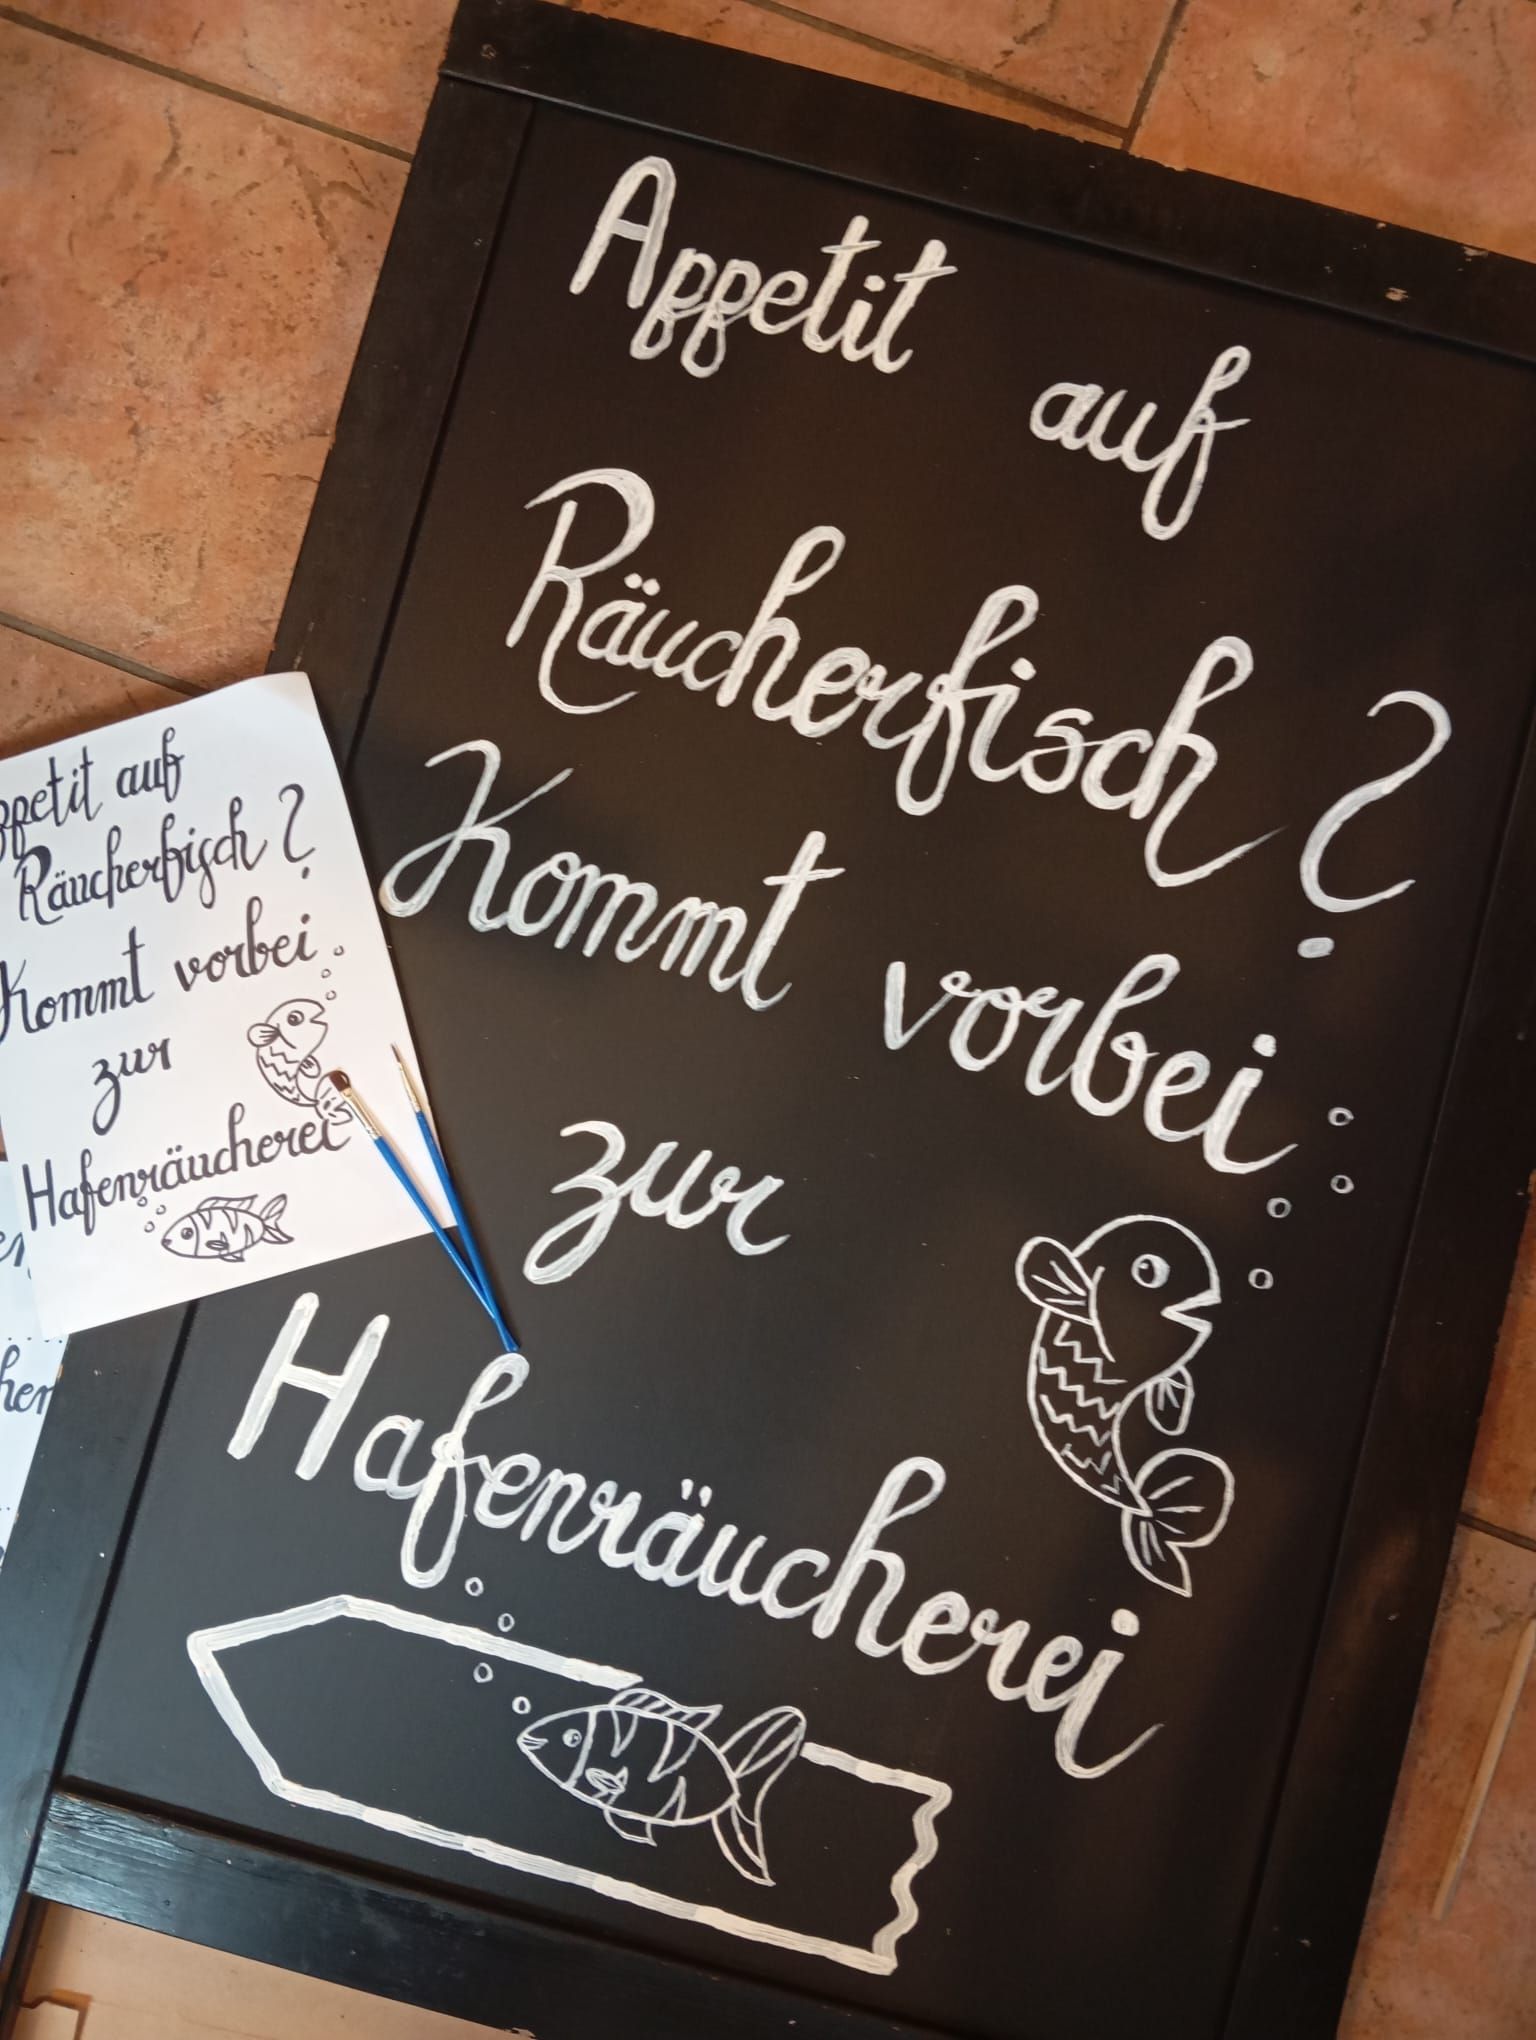 Appetit auf
Räucherfisch?
Kommt vorbei
zur
Hafenräucherei
ppetit auf
Räucherfisch?
Kommt vorbei
zur
Hafenräucherei